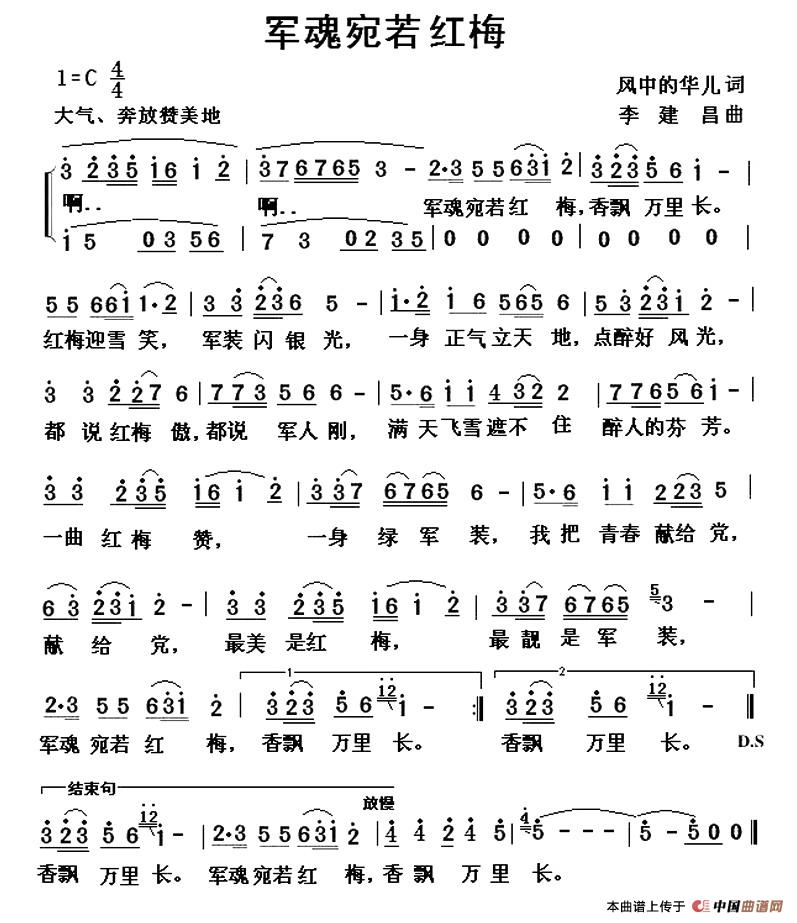 军魂宛若红梅
1=C 4/4
风中的华儿 词
大气、奔放赞美地
李建昌 曲
3 2 3 5 1 6 1 2 | 3 7 6 7 6 5 3 - | 2·3 5 5 6 3 1 2 | 3 2 3 5 6 1 - |
啊.. 啊.. 军魂宛若红 梅,香飘 万里长。
1 5 0 3 5 6 | 7 3 0 2 3 5 | 0 0 0 0 | 0 0 0 0 |
5 5 6 6 1 1·2 | 3 3 2 3 6 5 - | 1·2 1 6 5 6 5 6 | 5 3 2 3 1 2 - |
红梅迎雪 笑, 军装 闪 银 光, 一身 正气立天 地,点醉好 风光,
3 3 2 2 7 6 | 7 7 3 2 2 - | 5·6 1 1 4 3 2 2 | 7 7 6 5 6 1 - |
都 说 红梅 傲,都说 军人 刚, 满 天飞雪遮不 住 醉人的芬 芳。
3 3 2 3 5 1 6 1 2 | 3 3 7 6 7 6 5 6 - | 5·6 1 1 2 2 3 5 |
一曲 红 梅 赞, 一身 绿 军 装, 我 把 青春 献给 党,
6 3 2 3 1 2 - | 3 3 2 3 5 1 6 1 2 | 3 3 7 6 7 6 5 5 3 - |
献 给 党, 最美 是红 梅, 最 靓 是 军 装,
1 2
2·3 5 5 6 3 1 2 | 3 2 3 5 6 1 2 1 - :|| 3 2 3 5 6 1 2 1 - ||
军魂 宛若 红 梅, 香飘 万里 长。 香飘 万里 长。 D.S
结束句 放慢
3 2 3 5 6 1 2 1 - | 2·3 5 5 6 3 1 2 | 4 4 2 4 5 | 4 5 - - - | 5 - 5 0 0 ||
香飘 万里 长。 军魂宛若红 梅,香飘 万 里 长。
本曲谱上传于 中国曲谱网